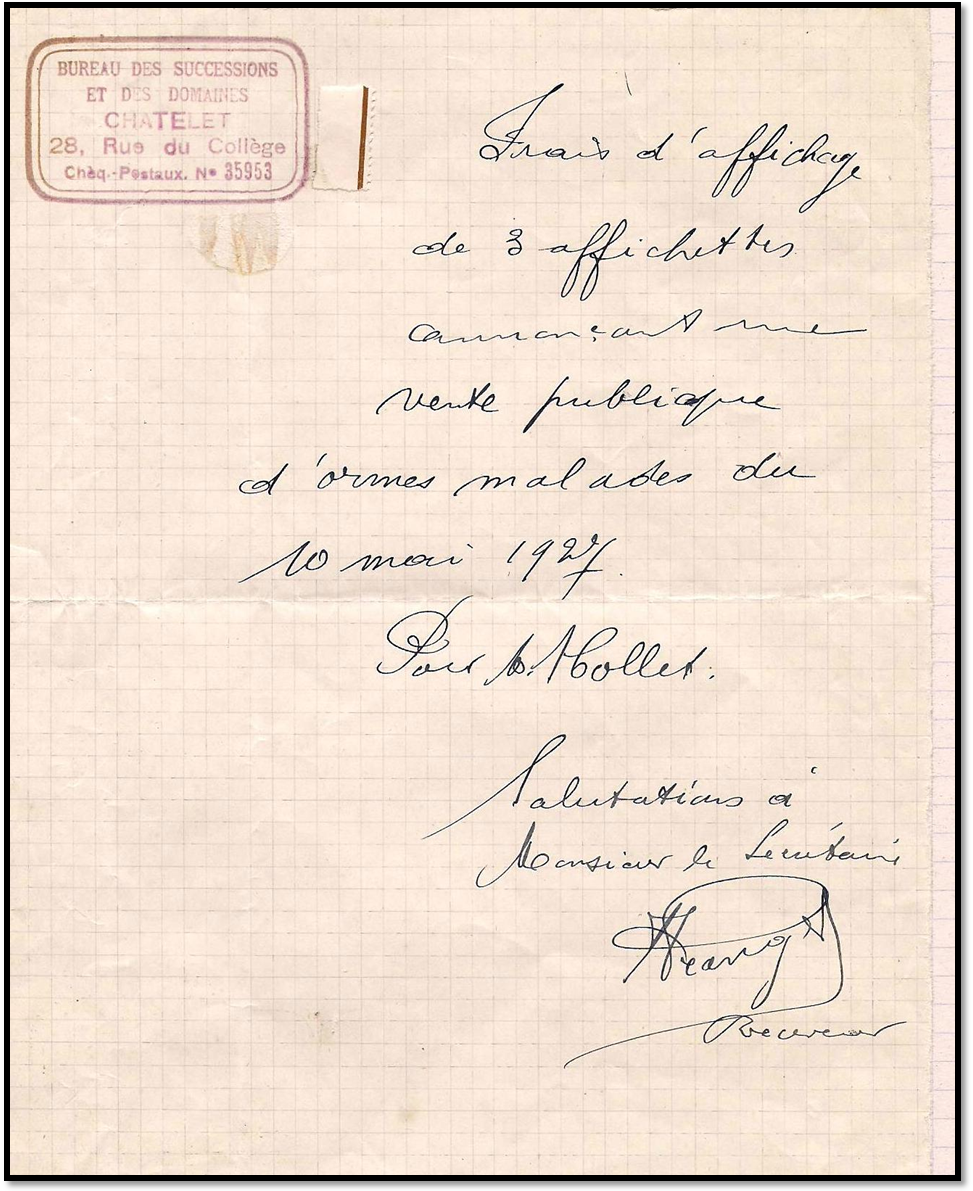 BUREAU DES SUCCESSIONS
ET DES DOMAINES
CHATELET
28, Rue du Collège
Chèq.-Postaux. N° 35953
Frais d'affichage
de 3 affichettes
annonçant une
vente publique
d'ormes malades du
10 mai 1927.
Pour
Salutations à
Monsieur le Secrétaire
Receveur